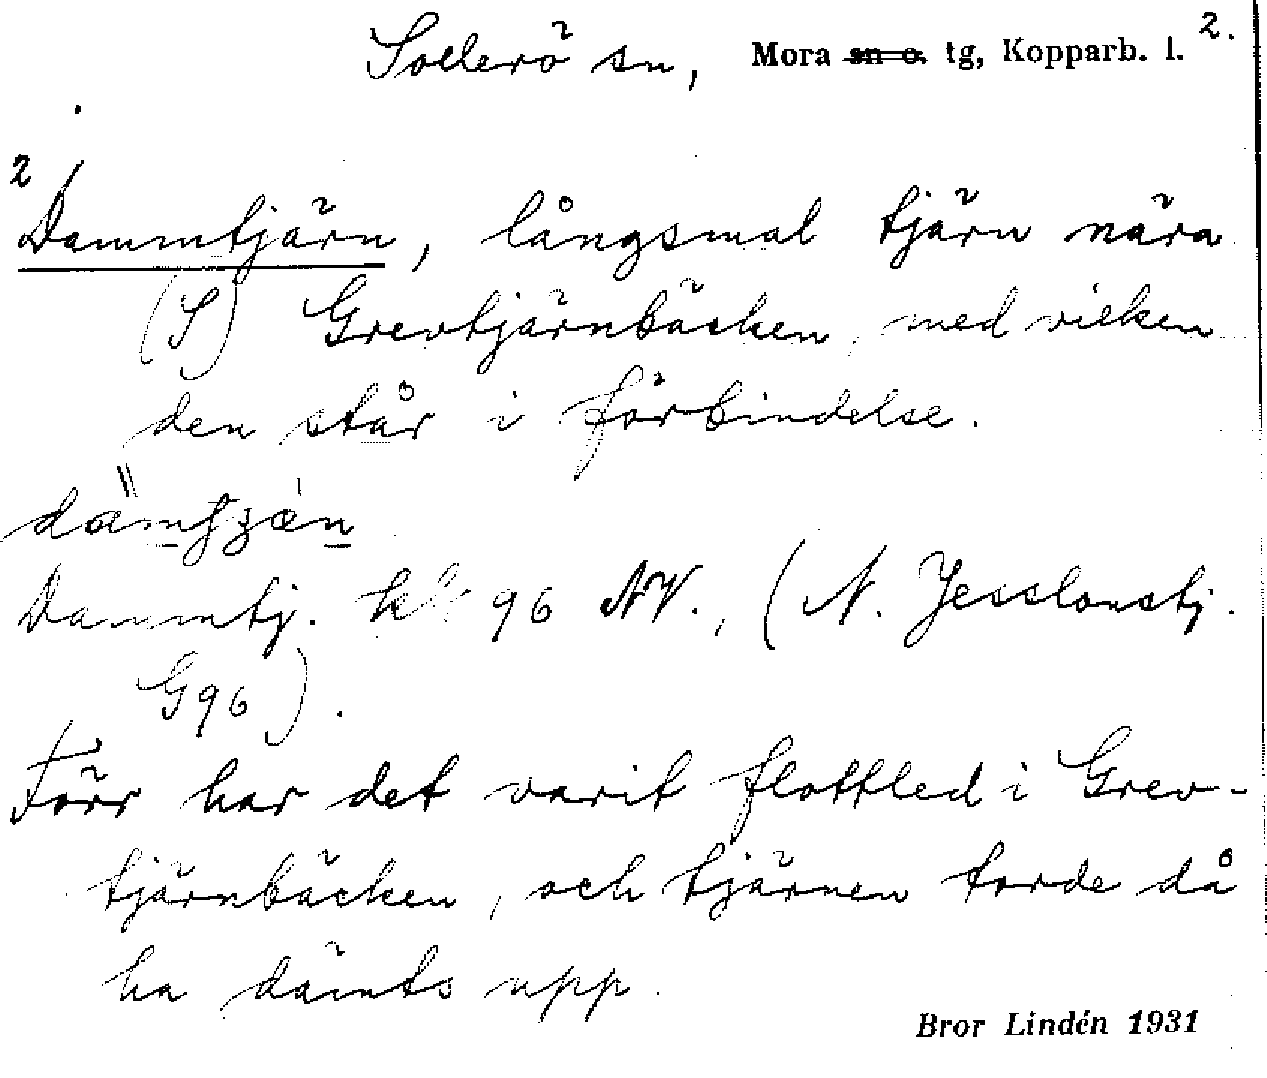 Sollerö sn, Mora sn o. tg, Kopparb. l. 2.
2
Dammtjärn, långsmal tjärn nära
(S) Grevtjärnbäcken, med vilken
den står i förbindelse.
Dammtj. 96 NV., (N. Jesslonstj.
G96).
Förr har det varit flottled i Grev-
tjärnbäcken, och tjärnen torde då
ha dämts upp.
Bror Lindén 1931